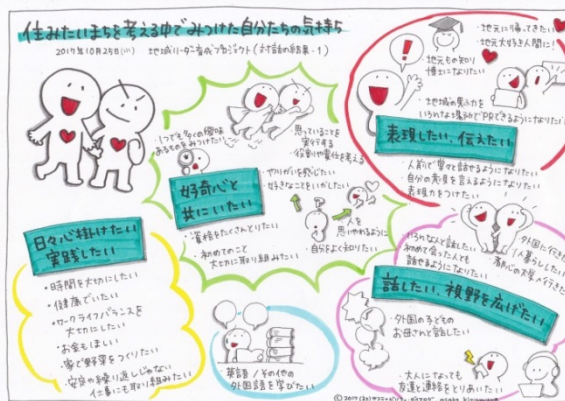 住みたいまちを考える中でみつけた自分たちの気持ち
2017年10月25日(水) 地域リーダー育成プロジェクト(対話の結果-1)
・地元に帰ってきたい
・地元大好き人間に!
・地元もの知り
博士になりたい
・地域の魅力を
いろんな場所でPRできるようになりたい
表現したい、伝えたい
・人前で堂々と話せるようになりたい
・自分の意見を言えるようになりたい
・表現力をつけたい
・いつでも多くの興味
あるものをみつけたい
・思っていることを
実行する
・役割や責任を考える
好奇心と
共にいたい
・やりがいを感じたい
・好きなことをいかしたい
・資格をたくさんとりたい
・初めてのこと
大切に取り組みたい
・人を
思いやれるように
・自分をよく知りたい
日々心掛けたい
実践したい
・時間を大切にしたい
・健康でいたい
・ワークライフバランスを
大切にしたい
・お金もほしい
・家で野菜をつくりたい
・安定や繰り返しじゃない
仕事にも取り組みたい
・英語/その他の
外国語を学びたい
・いろんな人と話したい
・初めて会った人とも
話せるようになりたい
・外国に行きたい
・1人暮らししたい
話したい、視野を広げたい
・外国の子どもの
お母さんと話したい
・大人になっても
友達と連絡をとりあいたい